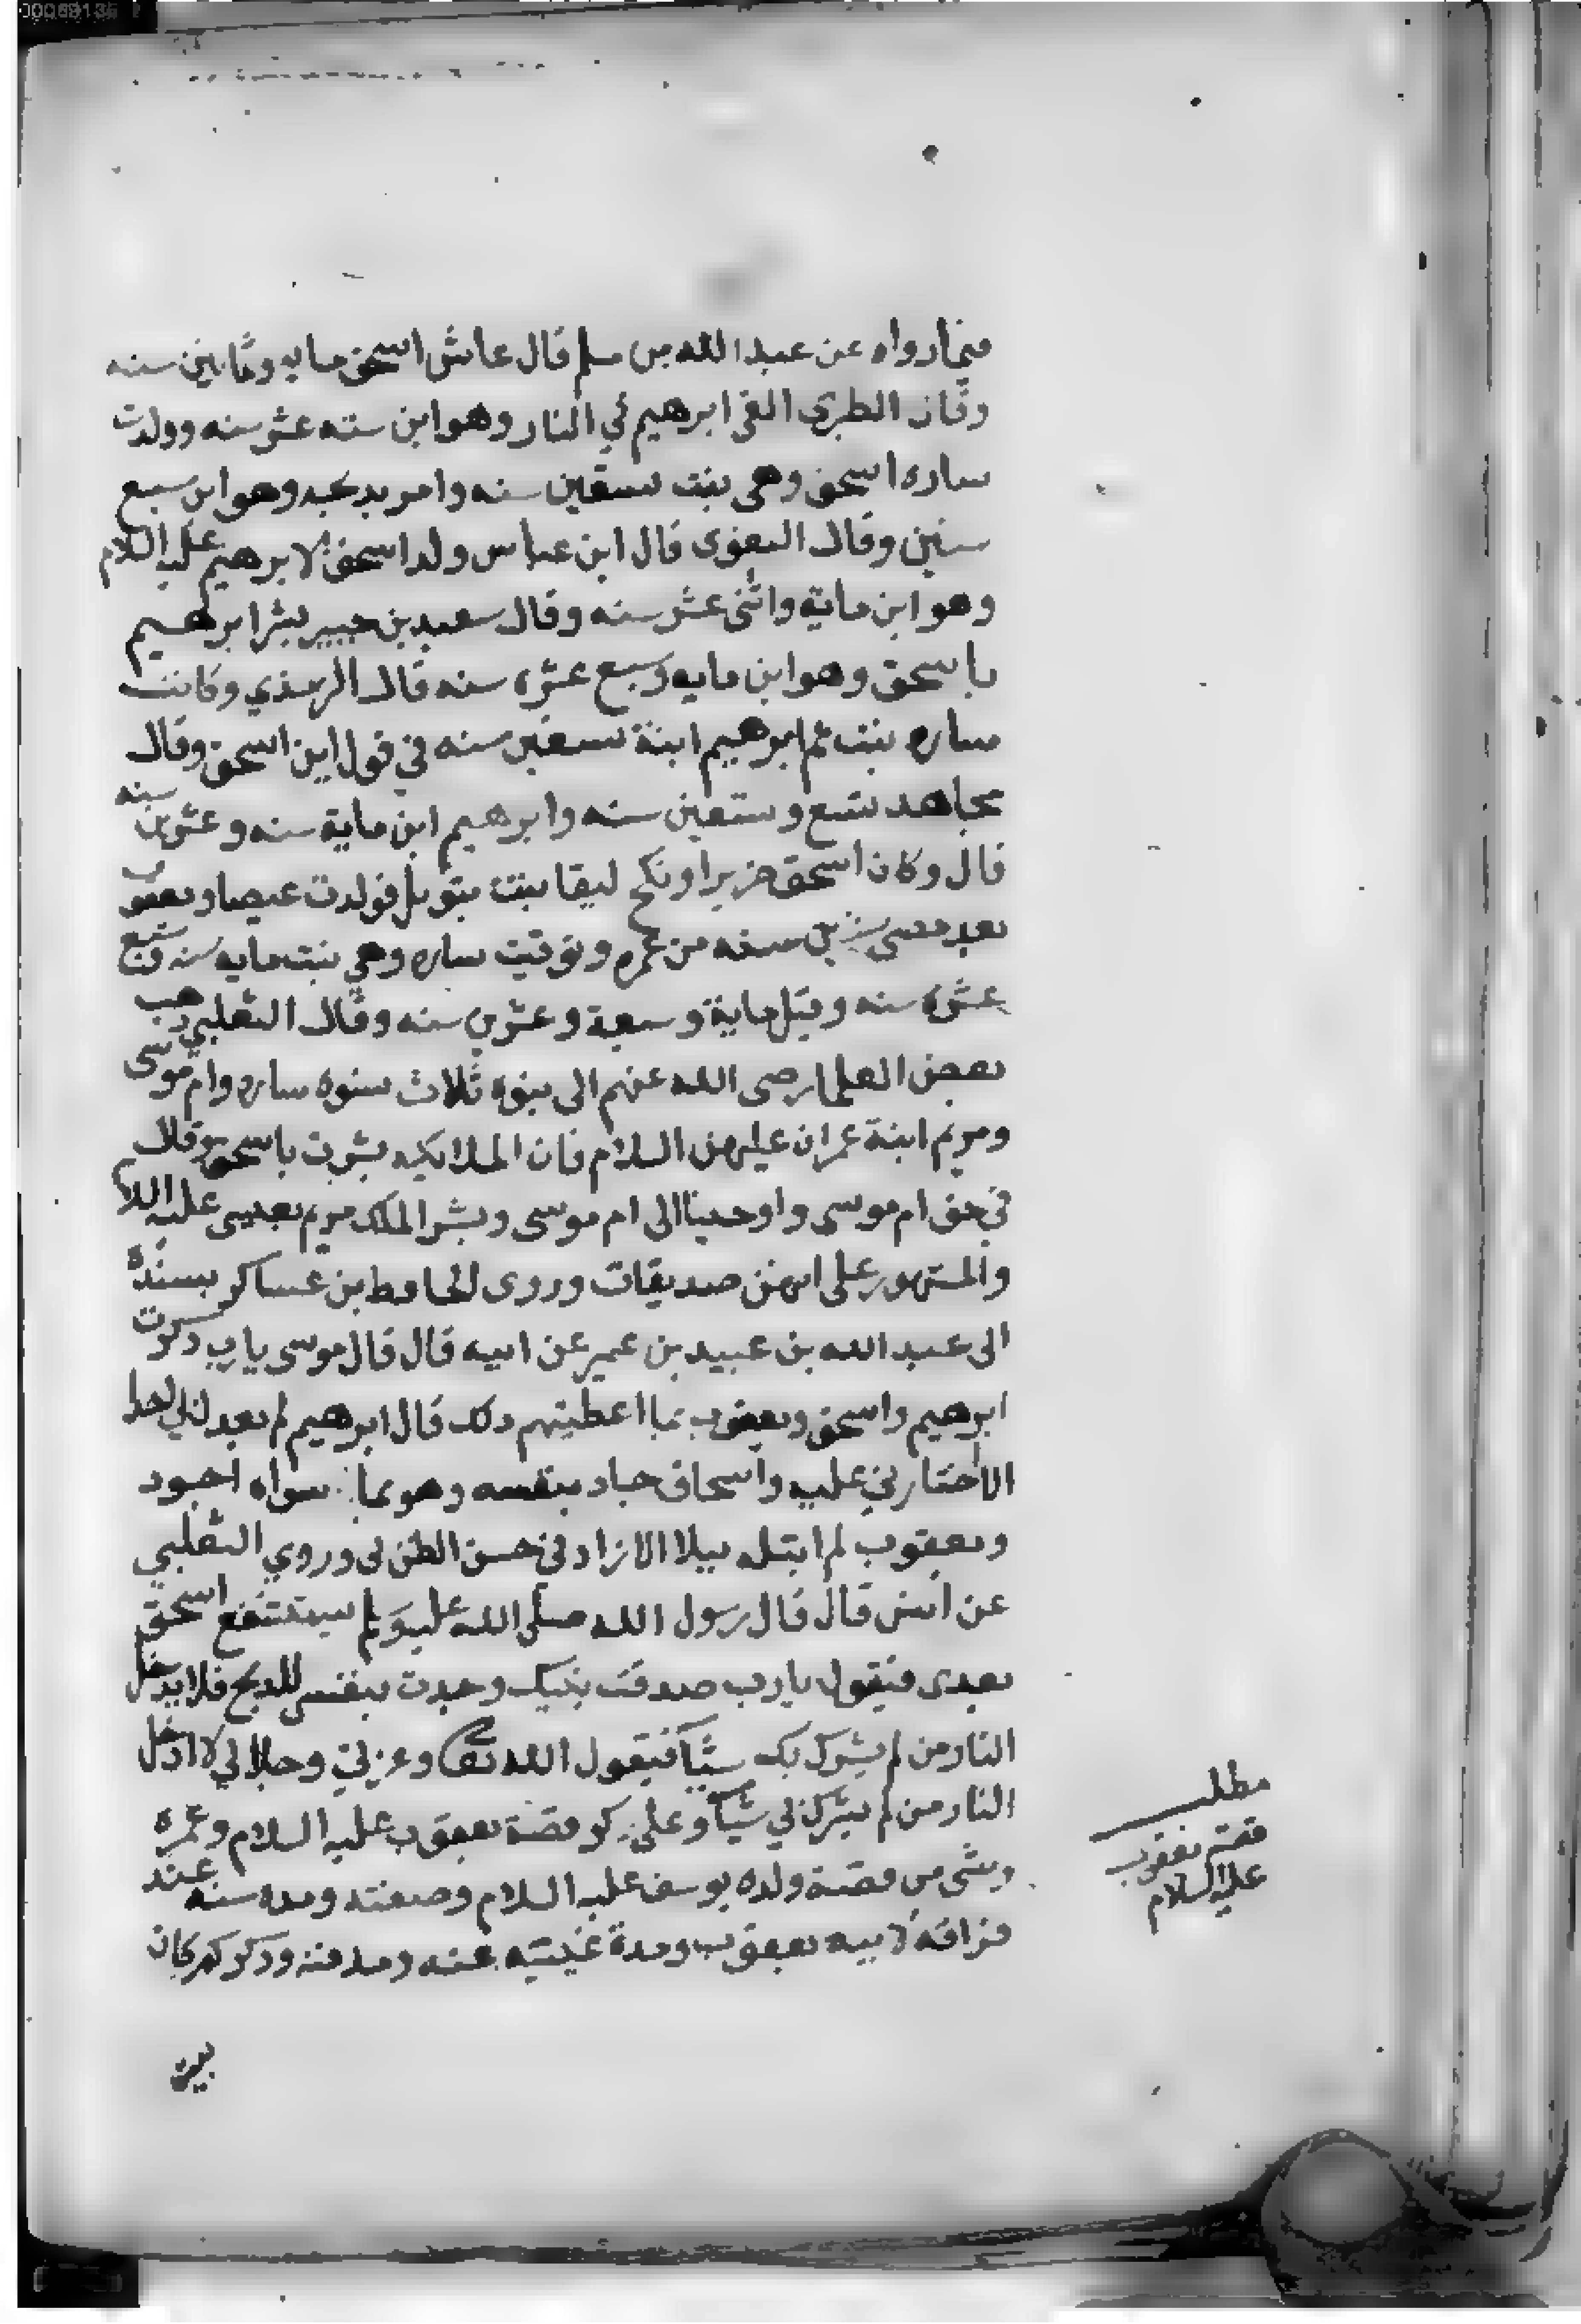 فيما رواه عن عبد الله بن سلم قال عاش اسحق مايه وثمانين سنه
وقال الطبري القى ابرهيم في النار وهو ابن سته عشر سنه وولدت
ساره اسحق وهي بنت تسعين سنه وامر بذبحه وهو ابن سبع
سنين وقال البغوى قال ابن عباس ولد اسحق لابرهيم عليه السلام
وهو ابن ماية واثنى عشر سنه وقال سعيد بن جبير بشر ابرهيم
باسحق وهو ابن مايه وسبع عشره سنه قال الرمذي وكانت
ساره بنت عم ابرهيم ابنة تسعين سنه في قول ابن اسحق وقال
مجاهد تسع وتسعين سنه وابرهيم ابن ماية سنه وعشرين سنه
قال وكان اسحق ضريرا ونكح ليقا بنت بتويل فولدت عيصا ويعقوب
بعد مضى ستين سنه من عمره وتوفيت ساره وهي بنت مايه سنه وسبع
عشره سنه وقيل ماية وسبعة وعشرين سنه وقال الثعلبي ذهب
بعض العلما رضى الله عنهم الى نبوه ثلاث نسوه ساره وام موسى
ومريم ابنة عمران عليهن السلام فان الملائكه بشرت باسحق وقال
في حق ام موسى واوحينا الى ام موسى وبشر الملك مريم بعيسى عليه السلام
والمشهور على انهن صديقات وروى الحافظ بن عساكر بسنده
الى عبد الله بن عبيد بن عمير عن ابيه قال قال موسى يا رب ذكرت
ابرهيم واسحق ويعقوب بما اعطيتهم ذلك قال ابرهيم لم يعدل بي احدا
الا اختارني عليه واسحاق جاد بنفسه وهو بما سواه اجود
ويعقوب لم ابتله ببلا الا زاد في حسن الظن بي وروي الثعلبي
عن انس قال قال رسول الله صلى الله عليه وسلم سيشفع اسحق
بعدى فيقول يا رب صدقت نبيك وجدت بنفسي للذبح فلا يدخل
النار من لم يشرك بك شيأ فيقول الله تعالى وعزتي وجلالي لا ادخل
النار من لم يشرك بي شيأ وعلى ذكر قصة يعقوب عليه السلام وعمره
وشى من قصة ولده يوسف عليه السلام وصفته ومده سنه عند
فراقه لابيه يعقوب ومدة غيبته عنه ومدفنه وذكر كم كان
بين
مطلب
قصة يعقوب
عليه السلام